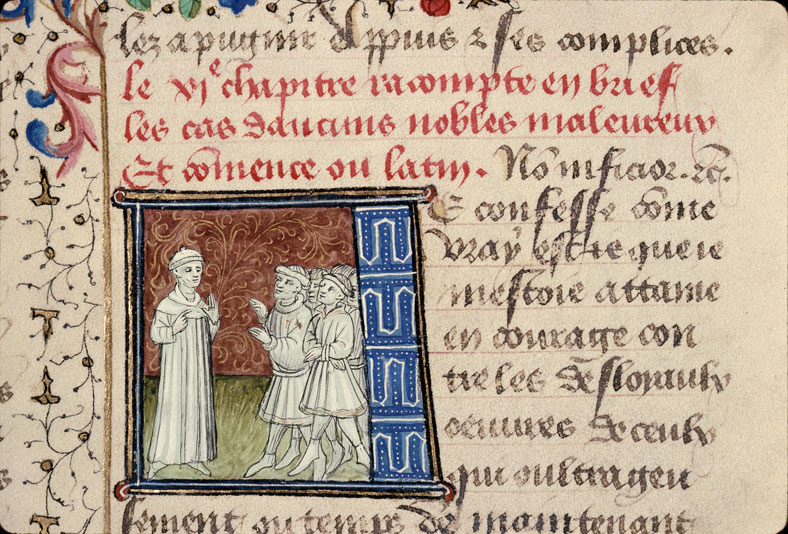 lez a pugnir Appius & ses complices.
le vje chapitre racompte en brief
les cas daucuns nobles maleureux
Et comence ou latin. Non inficior. &c.
E confesse come
vray est ie que ie
mestoie attame
en courage con
tre les desloraulx
oeuures de ceulx
qui oultrageu
sement ou temps de maintenant